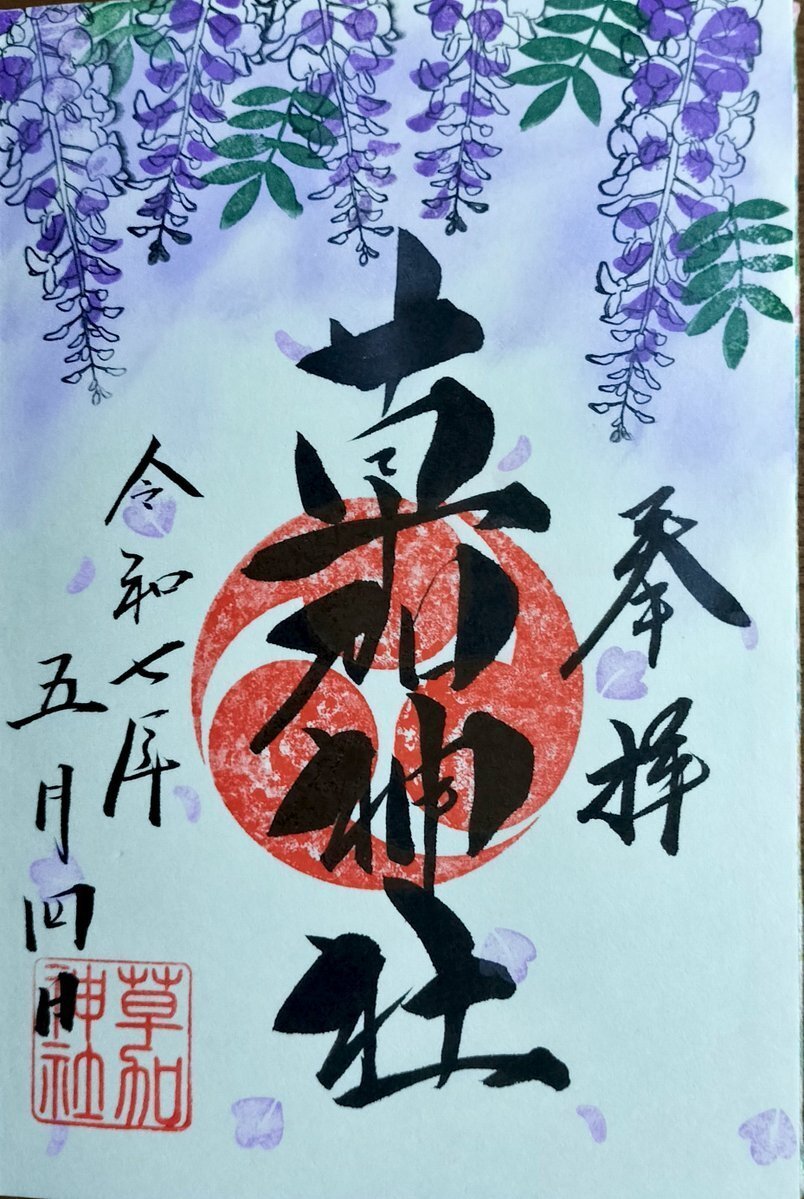 奉拝
草加神社
令和七年
五月四日
草加
神社